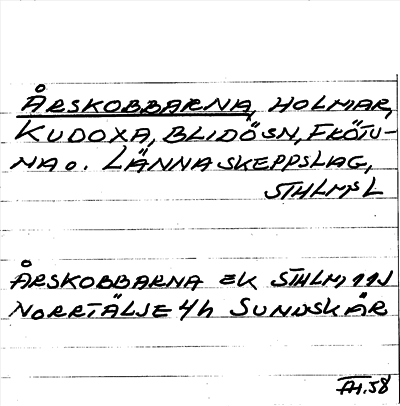 ÅRSKOBBARNA, HOLMAR,
KUDOXA, BLIDÖSN, FRÖTU-
NA O. LÄNNA SKEPPSLAG,
STHLMS L
ÅRSKOBBARNA EK STHLM, 11J
NORRTÄLJE 4h SUNDSKÄR
AH.58